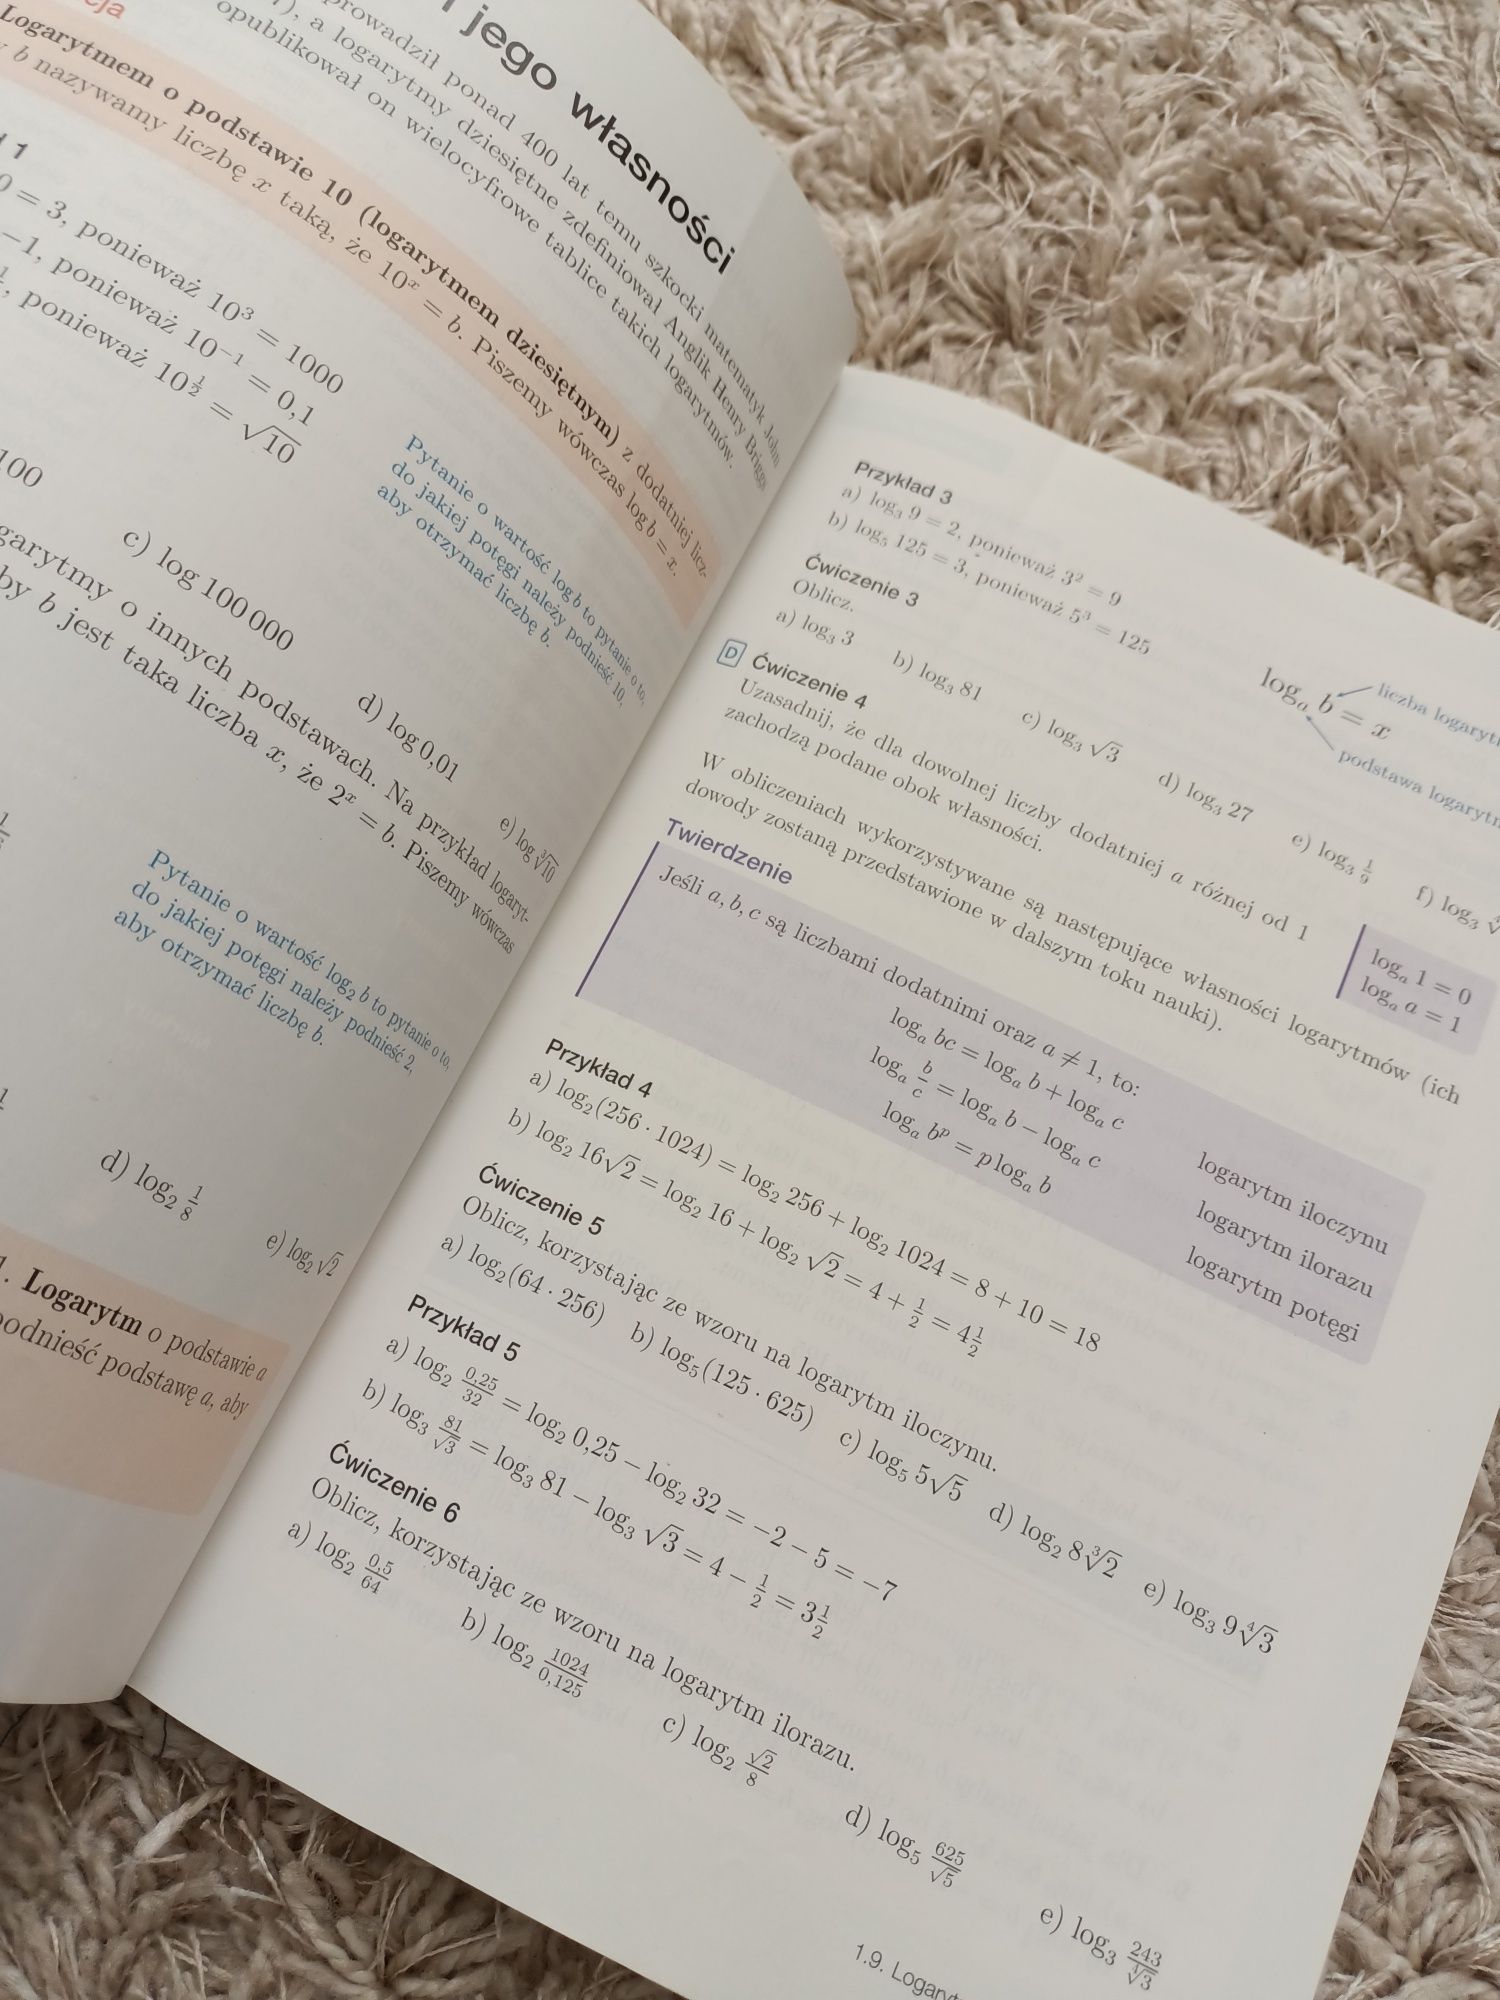 i jego własności
prowadził ponad 400 lat temu szkocki matematyk John
a logarytmy dziesiętne zdefiniował Anglik Henry Briggs
opublikował on wielocyfrowe tablice takich logarytmów.
Logarytmem o podstawie 10 (logarytmem dziesiętnym) z dodatniej licz-
b nazywamy liczbę x taką, że 10ˣ = b. Piszemy wówczas log b = x.
1
= 3, ponieważ 10³ = 1000
−1, ponieważ 10⁻¹ = 0,1
, ponieważ 10^(1/2) = √10
Pytanie o wartość log b to pytanie o to,
do jakiej potęgi należy podnieść 10,
aby otrzymać liczbę b.
100
c) log 100 000
d) log 0,01
e) log ∛10
garytmy o innych podstawach. Na przykład logaryt-
by b jest taka liczba x, że 2ˣ = b. Piszemy wówczas
Pytanie o wartość log₂ b to pytanie o to,
do jakiej potęgi należy podnieść 2,
aby otrzymać liczbę b.
d) log₂ 1/8
e) log₂ √2
1. Logarytm o podstawie a
podnieść podstawę a, aby
Przykład 3
a) log₃ 9 = 2, ponieważ 3² = 9
b) log₅ 125 = 3, ponieważ 5³ = 125
logₐ b = x
liczba logaryt
podstawa logarytm
Ćwiczenie 3
Oblicz.
a) log₃ 3 b) log₃ 81 c) log₃ √3 d) log₃ 27 e) log₃ 1/9 f) log₃
D Ćwiczenie 4
Uzasadnij, że dla dowolnej liczby dodatniej a różnej od 1
zachodzą podane obok własności.
logₐ 1 = 0
logₐ a = 1
W obliczeniach wykorzystywane są następujące własności logarytmów (ich
dowody zostaną przedstawione w dalszym toku nauki).
Twierdzenie
Jeśli a, b, c są liczbami dodatnimi oraz a ≠ 1, to:
logₐ bc = logₐ b + logₐ c logarytm iloczynu
logₐ b/c = logₐ b − logₐ c logarytm ilorazu
logₐ bᵖ = p logₐ b logarytm potęgi
Przykład 4
a) log₂(256 · 1024) = log₂ 256 + log₂ 1024 = 8 + 10 = 18
b) log₂ 16√2 = log₂ 16 + log₂ √2 = 4 + 1/2 = 4 1/2
Ćwiczenie 5
Oblicz, korzystając ze wzoru na logarytm iloczynu.
a) log₂(64 · 256) b) log₅(125 · 625) c) log₅ 5√5 d) log₂ 8∛2 e) log₃ 9∜3
Przykład 5
a) log₂ 0,25/32 = log₂ 0,25 − log₂ 32 = −2 − 5 = −7
b) log₃ 81/√3 = log₃ 81 − log₃ √3 = 4 − 1/2 = 3 1/2
Ćwiczenie 6
Oblicz, korzystając ze wzoru na logarytm ilorazu.
a) log₂ 0,5/64 b) log₂ 1024/0,125 c) log₂ √2/8 d) log₅ 625/√5 e) log₃ 243/∜3
1.9. Logaryt